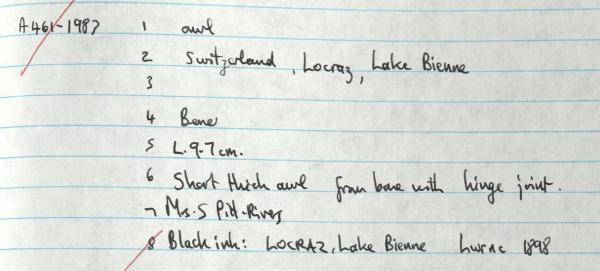 A461-1987 1 awl
2 Switzerland, Locraz, Lake Bienne
3
4 Bone
5 L. 9.7cm.
6 Short thick awl from bone with hinge joint.
7 Mrs. S Pitt-Rivers
8 Black ink: LOCRAZ, Lake Bienne 1898